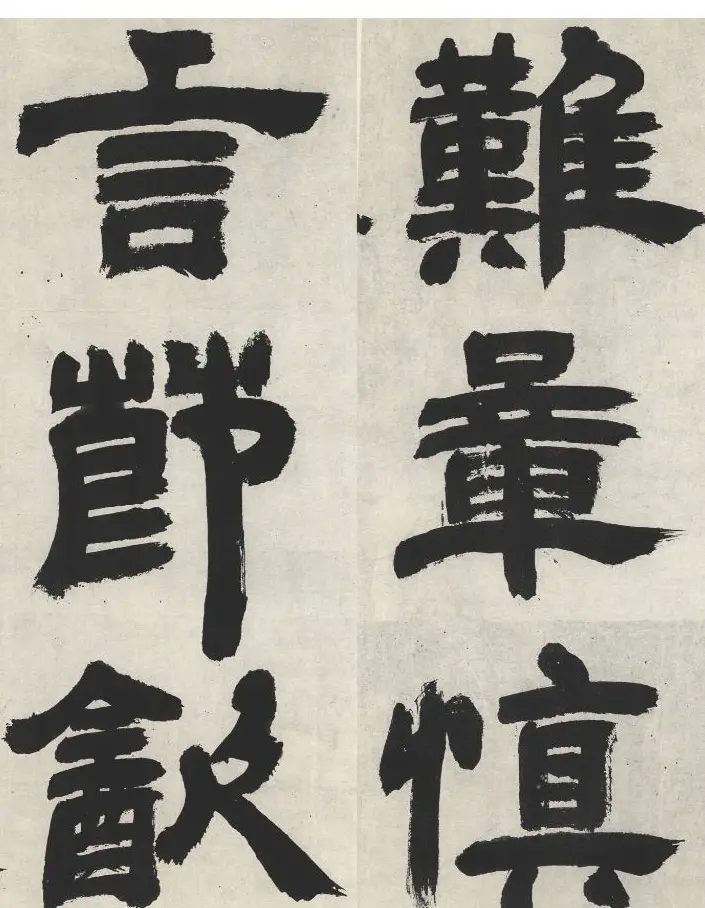 難量慎
言節飲